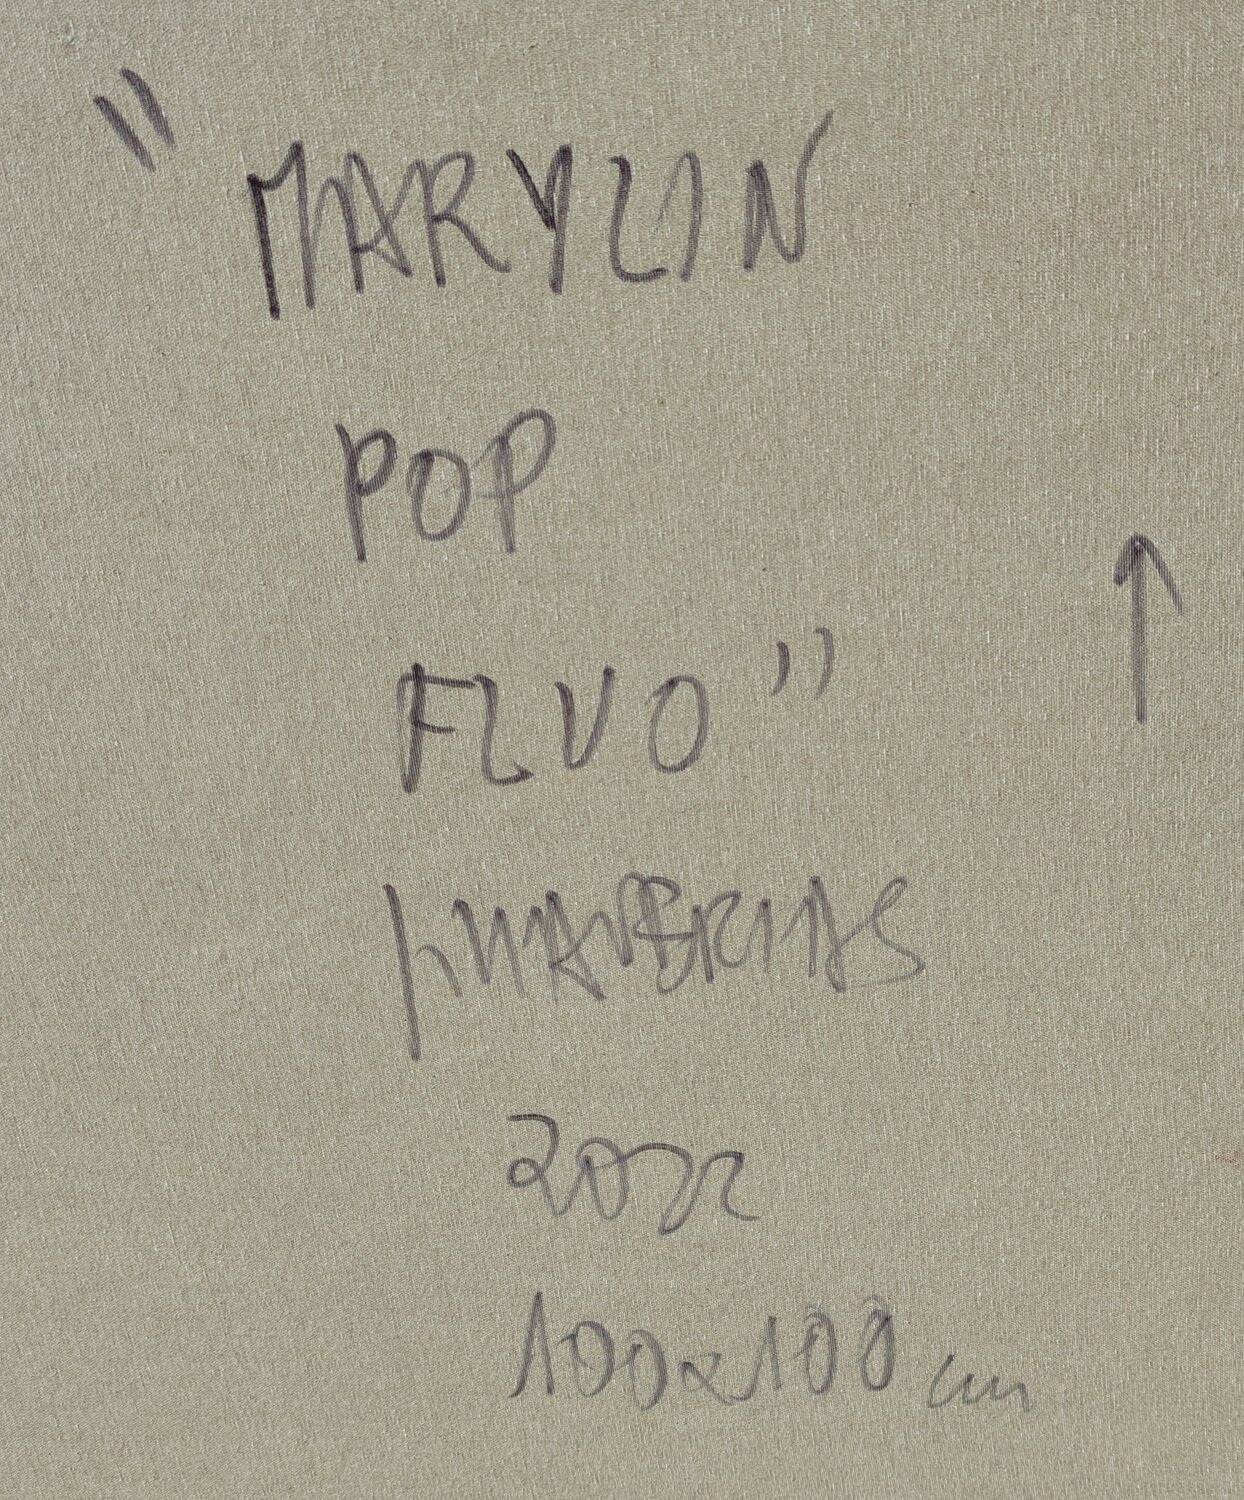 "MARYLIN
POP
FLUO"
↑
2022
100x100 cm